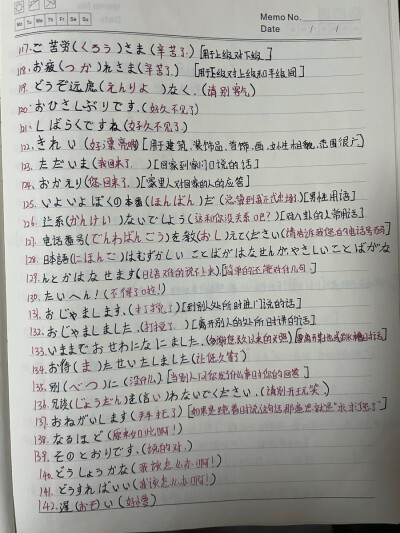 Memo No.
Mo Tu We Th Fr Sa Su
Date / /
117. ご苦労(くろう)さま(辛苦了.) [用于上级对下级]
118. お疲(つか)れさま(辛苦了.) [用于下级对上级和平级间]
119. どうぞ远慮(えんりょ)なく.(请别客气)
120. おひさしぶりです.(好久不见了)
121. しばらくですね(好久不见了)
122. きれい(好漂亮啊)[用于建筑.装饰品.首饰.画.女性相貌.范围很广]
123. ただいま(我回来了.)[回家到家门口说的话]
124. おかえり(您回来了.)[家里人对回家的人的应答]
125. いよいよぼくの本番(ほんばん)だ(总算到我正式出场了)[男性用语]
126. 关系(かんけい)ないでしょう(这和你没关系吧?)[对八卦的人常用语]
127. 电话番号(でんわばんごう)を教(おし)えてください(请告诉我您的电话号码)
128. 日本語(にほんご)はむずかしい ことばがはなせんが.やさしいことばがな
129. んとかはなせます(日语难的说不上来)[简单的还能对付几句]
130. たいへん!(不得了啦!)
131. おじゃまします.(打搅了.)[到别人处所时进门说的话]
132. おじゃましました.(打搅了.)[离开别人的处所时讲的话]
133. いままでおせわになにました.(多谢您长久以来的关照)
134. お待(ま)たせいたしました(让您久等了)
135. 别(べつ)に(没什么)[当别人问你发什么事时你的回答]
136. 冗談(じょうだん)を言わないでください.(请别开玩笑)
137. おねがいします(拜托了)
138. なるほど(原来如此啊!)
139. そのとおりです.(说的对.)
140. どうしょうかな(我该怎么办啊!)
141. どうすればいい(我该怎么办啊!)
142. 遅(おそ)い(好慢)